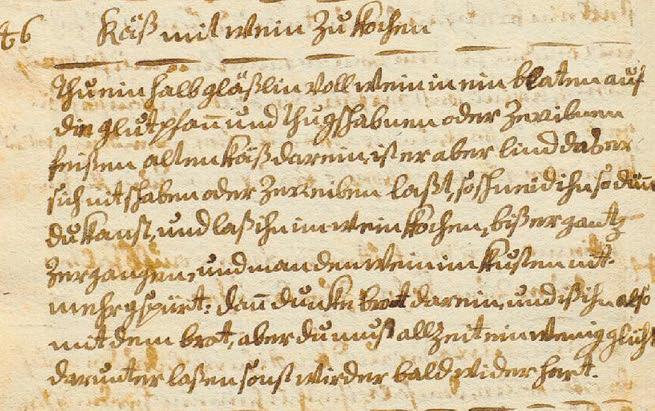 46 Käß mit wein zu kochen
Thu ein halb gläßlin voll wein in ein blaten auf
die glutpfañ und thu gschabnen oder zeribnen
feißen alten käß darein, ist er aber lind das er
sich nit schaben oder zerreiben laßt, so schneid ihn so düñ
du kanst, und laß ihn im wein kochen, biß er gantz
zergangen, und man den wein im kusten nit
mehr gspürt: dañ dunke brot darein, und iß ihn also
mit dem brot, aber du must allzeit ein wenig glicht
darunter laßen sonst wird er bald wider hart.